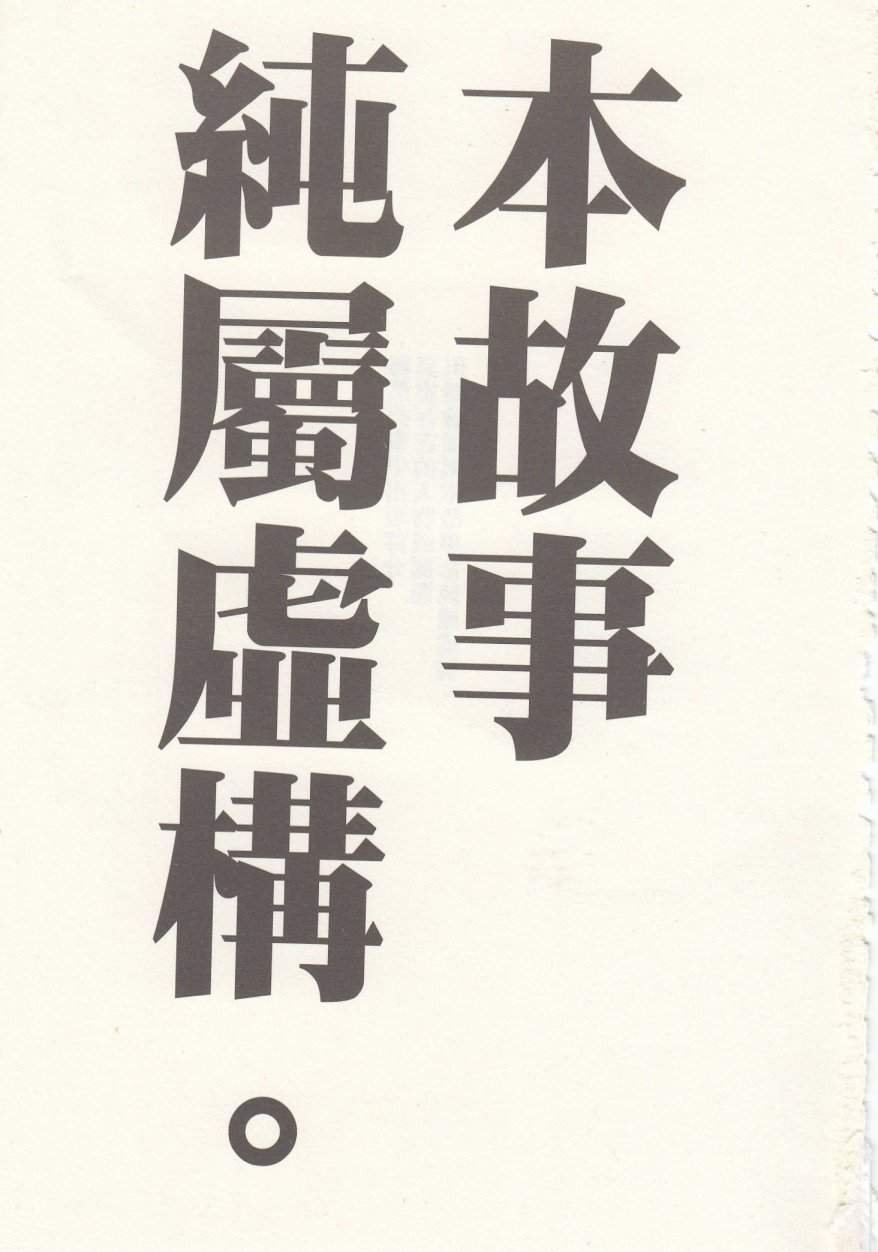 本故事
純屬虛構。